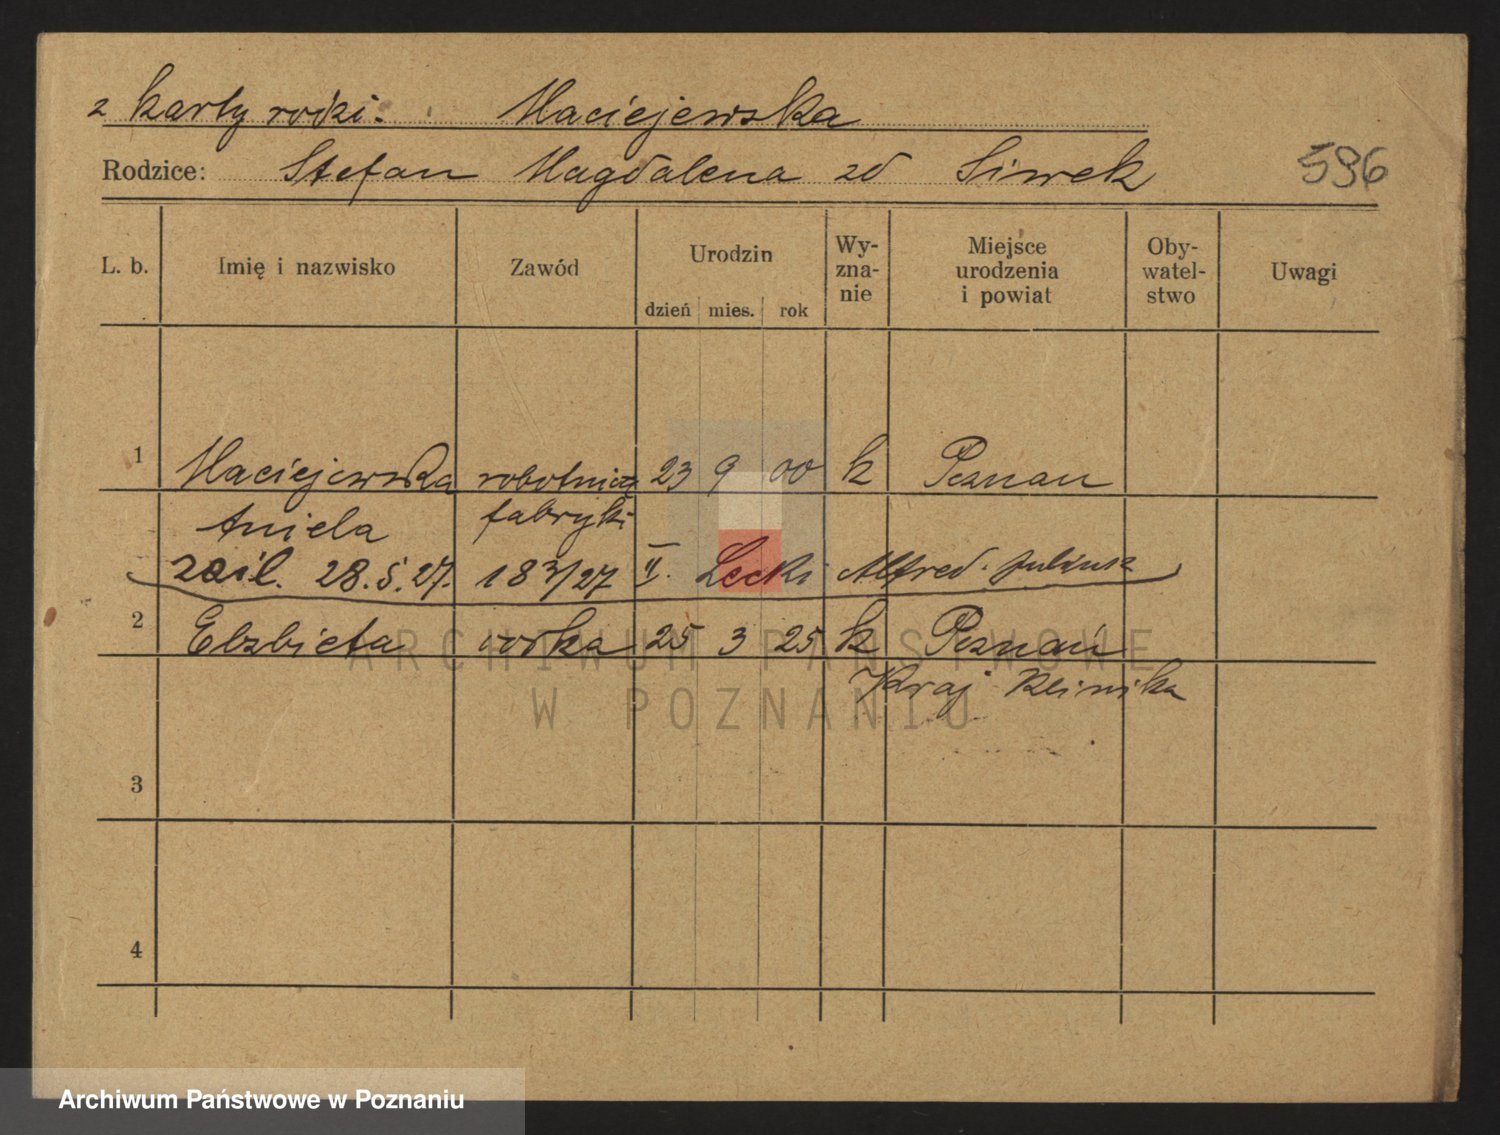 z karty rodzi: Maciejewska
Rodzice: Stefan Magdalena zd Siwek
596
L. b. Imię i nazwisko Zawód Urodzin dzień mies. rok Wy-zna-nie Miejsce urodzenia i powiat Oby-watel-stwo Uwagi
1 Maciejewska robotnica 23 9 00 k Poznan
Aniela fabryki
zaśl. 28.5.27. 183/27 II. Lecki Alfred Juliusz
2 Elzbieta corka 25 3 25 k Poznań
Kraj Klinika
3
4
ARCHIWUM PAŃSTWOWE
W POZNANIU
Archiwum Państwowe w Poznaniu